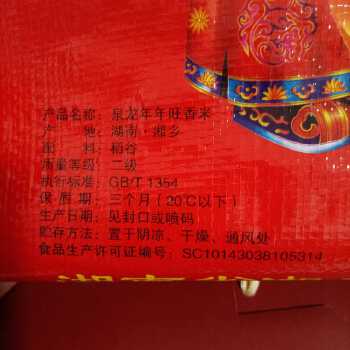 产品名称：泉龙年年旺香米
产　地：湖南·湘乡
配　料：稻谷
质量等级：二级
执行标准：GB/T 1354
保 质 期：三个月（20℃以下）
生产日期：见封口或喷码
贮存方法：置于阴凉、干燥、通风处
食品生产许可证编号：SC10143038105314